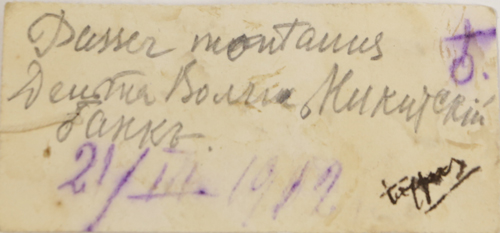 Passer montanus
Дельта Волги, Никитскій
банкъ.
21/III 1912